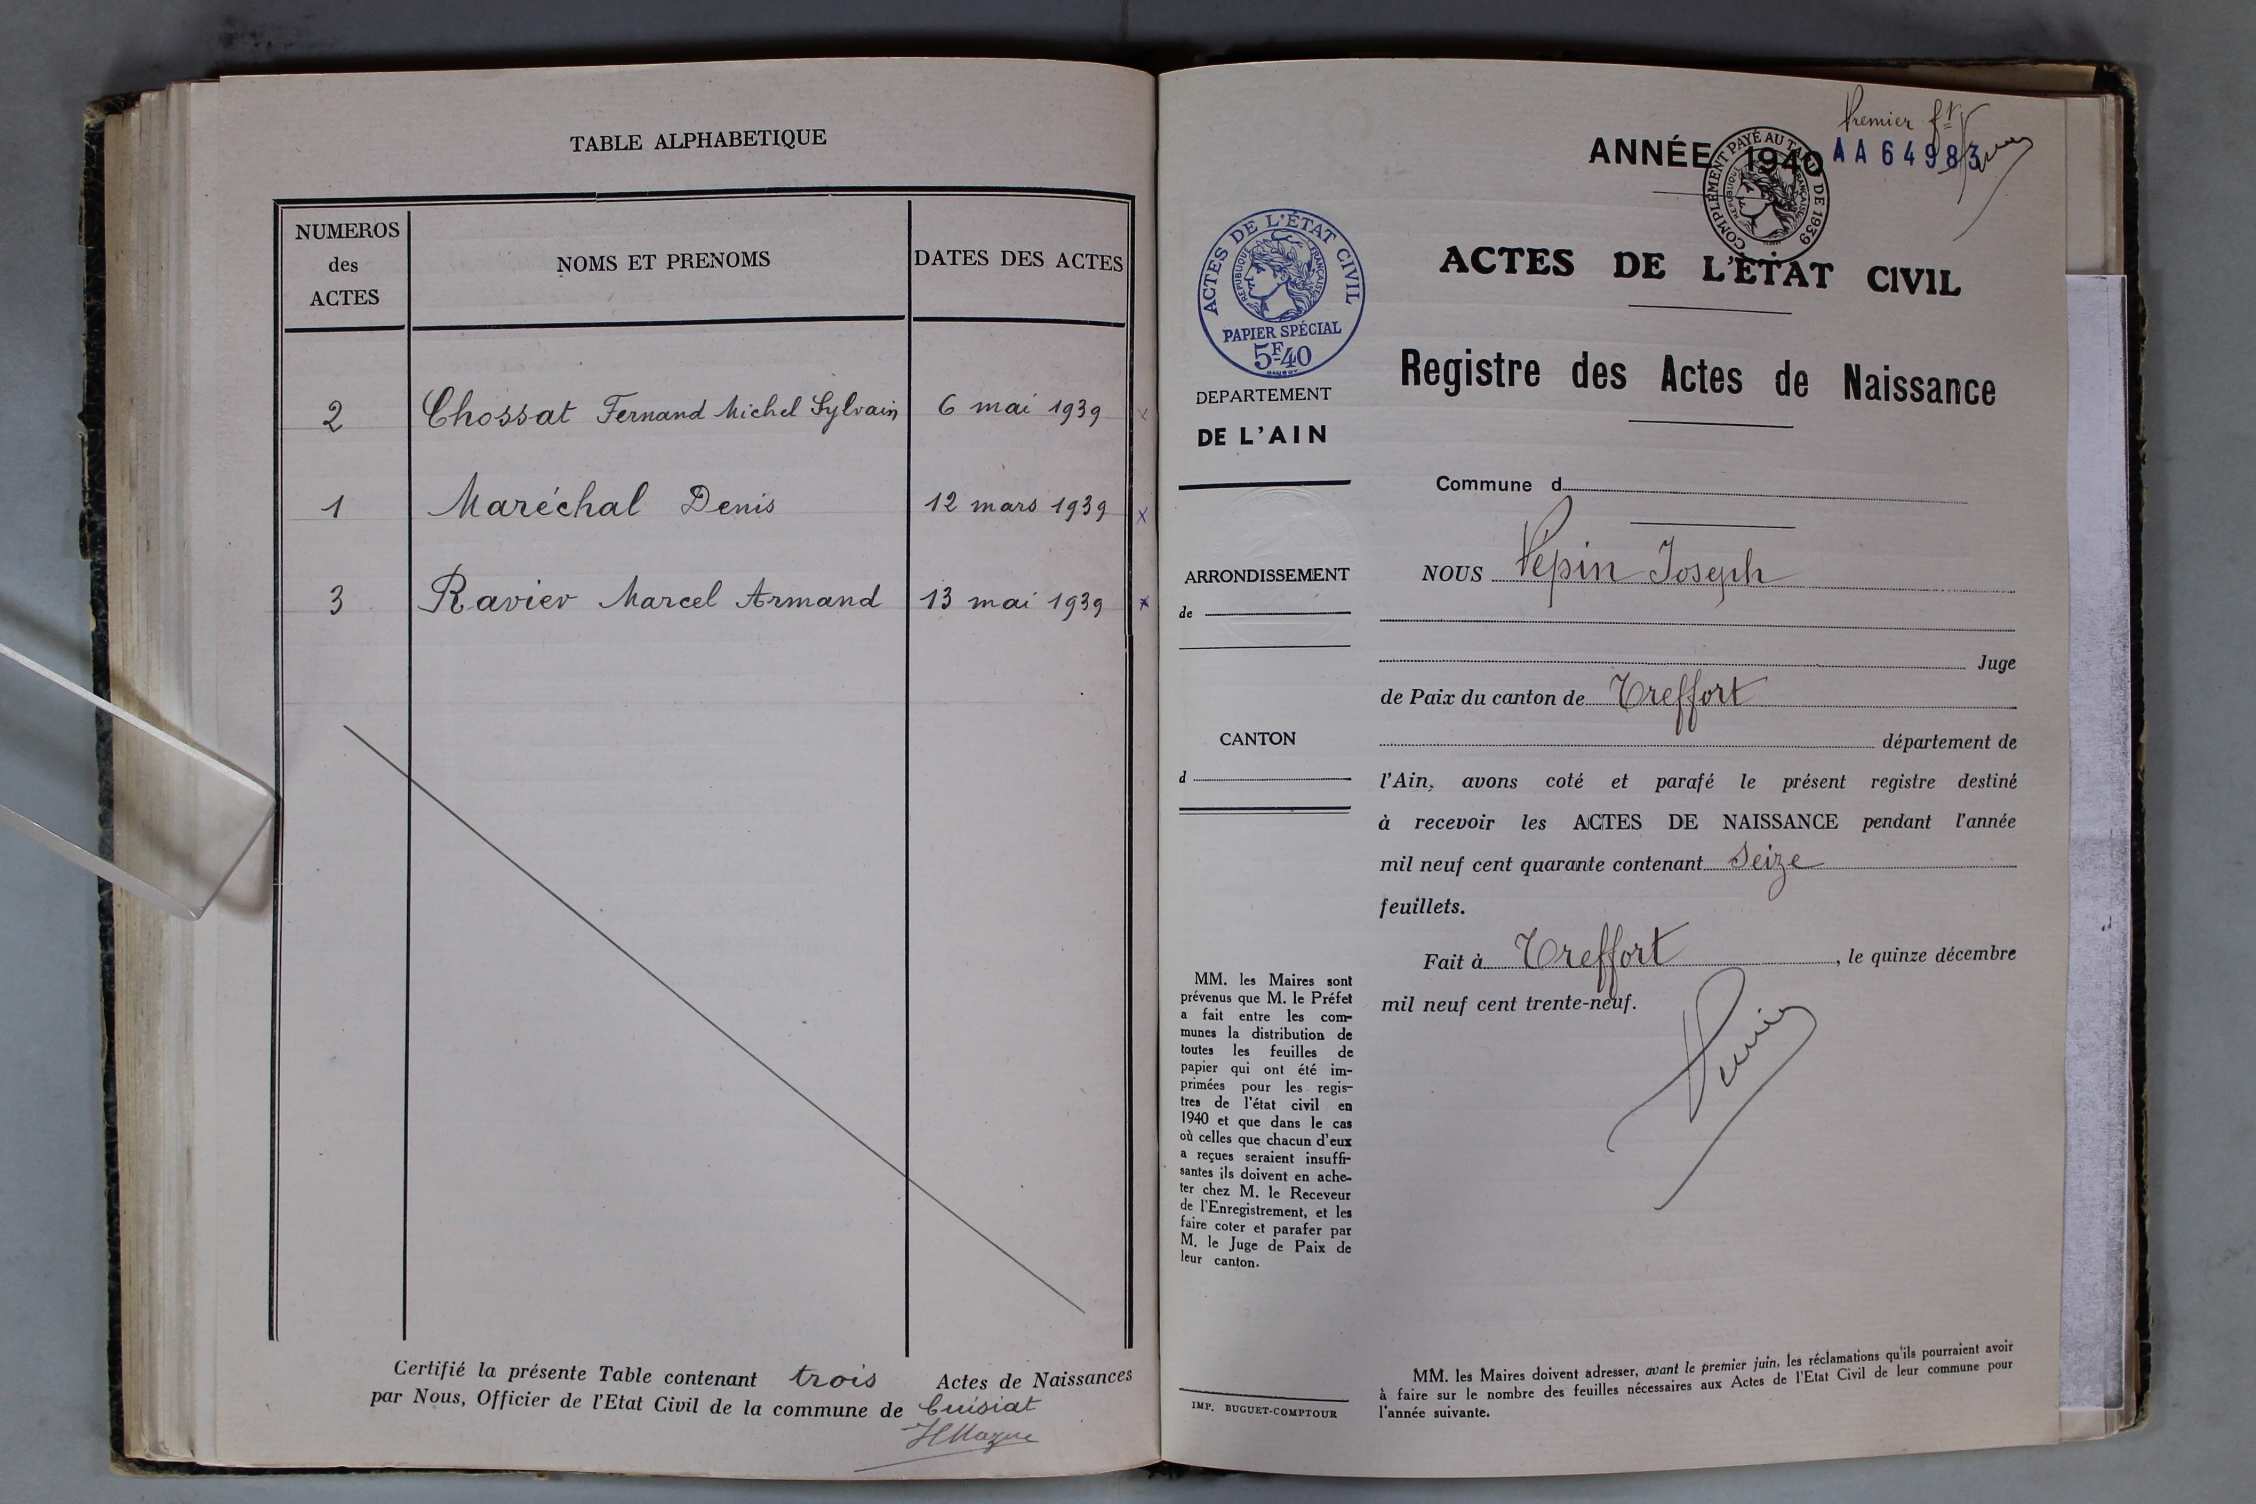 TABLE ALPHABETIQUE
NUMEROS
des
ACTES
NOMS ET PRENOMS
DATES DES ACTES
2 Chossat Fernand Michel Sylvain 6 mai 1939 x
1 Maréchal Denis 12 mars 1939 x
3 Ravier Marcel Armand 13 mai 1939 x
Certifié la présente Table contenant trois Actes de Naissances
par Nous, Officier de l'Etat Civil de la commune de Cuisiat
Premier ft
ANNÉE 1940 AA 64983
COMPLÉMENT PAYÉ AU TARIF DE 1939
RÉPUBLIQUE FRANÇAISE
ACTES DE L'ÉTAT CIVIL
RÉPUBLIQUE FRANÇAISE
PAPIER SPÉCIAL
5F.40
ACTES DE L'ETAT CIVIL
Registre des Actes de Naissance
DEPARTEMENT
DE L'AIN
ARRONDISSEMENT
de
CANTON
d
MM. les Maires sont
prévenus que M. le Préfet
a fait entre les com-
munes la distribution de
toutes les feuilles de
papier qui ont été im-
primées pour les regis-
tres de l'état civil en
1940 et que dans le cas
où celles que chacun d'eux
a reçues seraient insuffi-
santes ils doivent en ache-
ter chez M. le Receveur
de l'Enregistrement, et les
faire coter et parafer par
M. le Juge de Paix de
leur canton.
IMP. BUGUET-COMPTOUR
Commune d
NOUS Pépin Joseph
Juge
de Paix du canton de Treffort
département de
l'Ain, avons coté et parafé le présent registre destiné
à recevoir les ACTES DE NAISSANCE pendant l'année
mil neuf cent quarante contenant Seize
feuillets.
Fait à Treffort, le quinze décembre
mil neuf cent trente-neuf.
MM. les Maires doivent adresser, avant le premier juin, les réclamations qu'ils pourraient avoir
à faire sur le nombre des feuilles nécessaires aux Actes de l'Etat Civil de leur commune pour
l'année suivante.